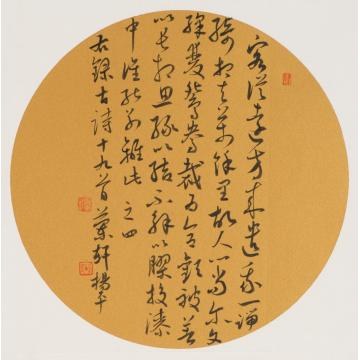 客從遠方來遺我一端
綺相去萬餘里故人心尚爾文
綵雙鴛鴦裁為合歡被著
以長相思緣以結不解以膠投漆
中誰能別離此之四
右錄古詩十九首蘭軒楊平